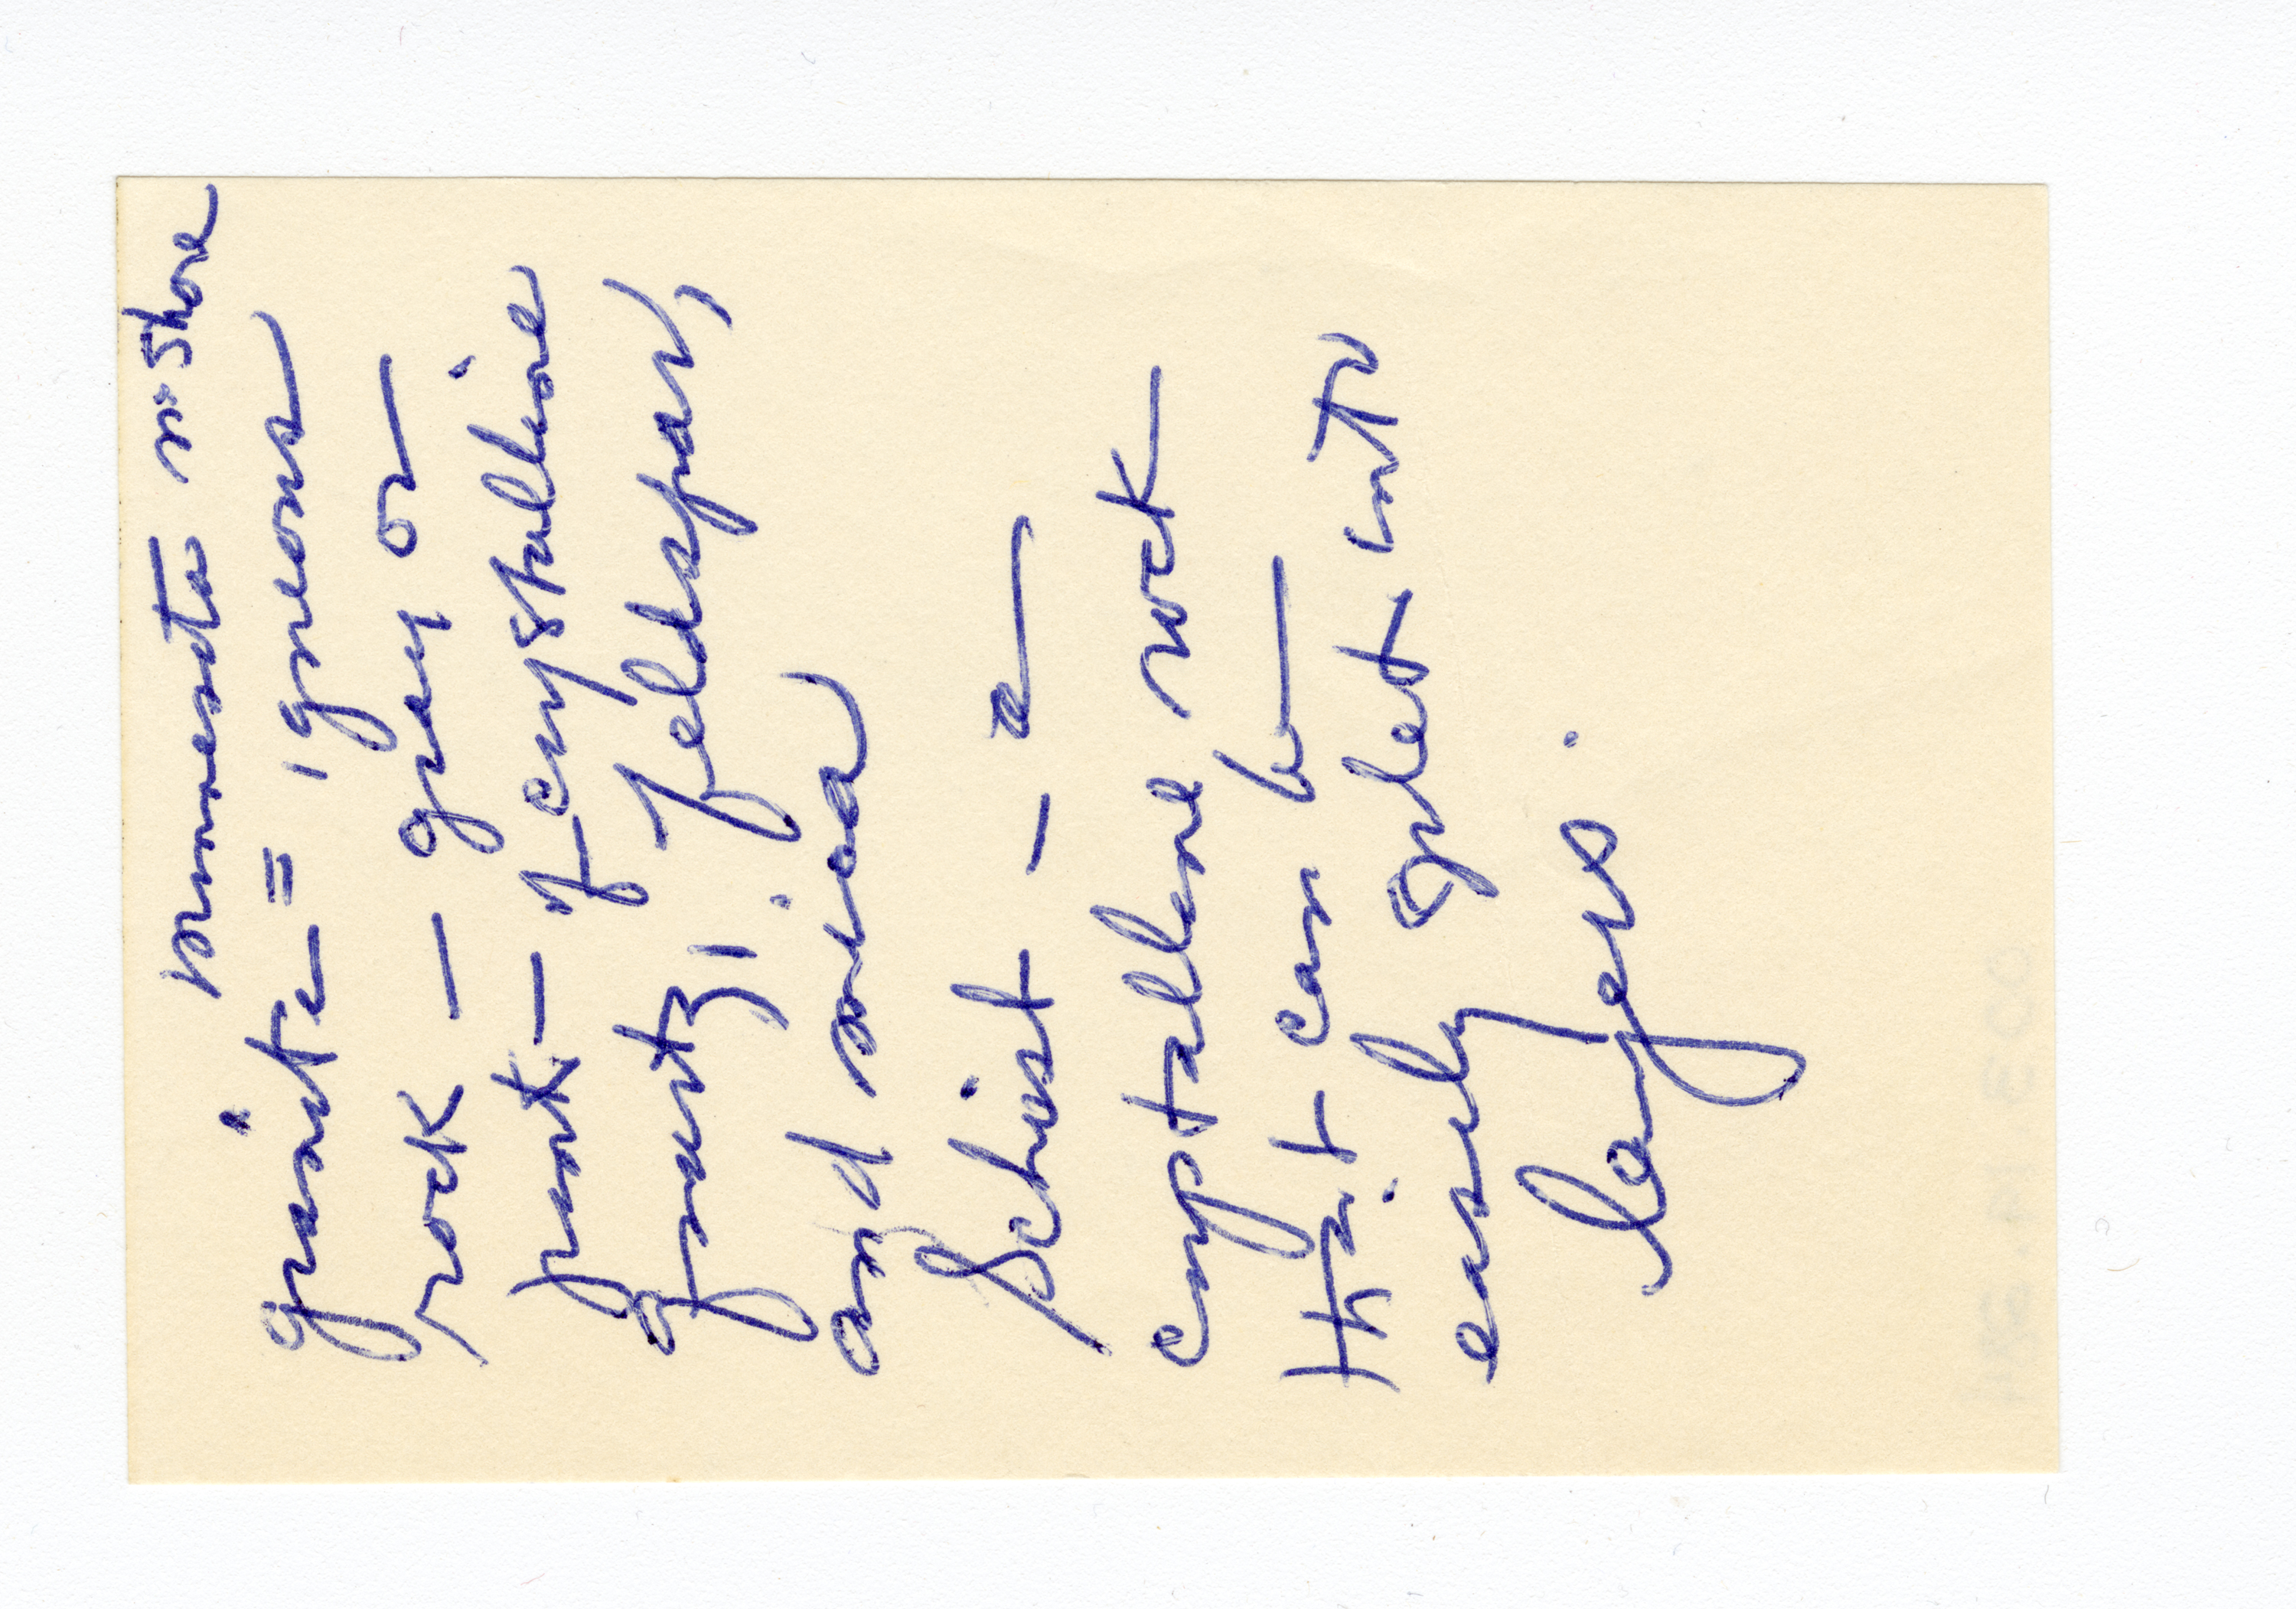 Minnesota n. Shore
granite = igneous
rock — gray or
pink — of crystalline
quartz, feldspar,
and mica
Schist — a
crystallene rock
that can be
easily splet into
layers.